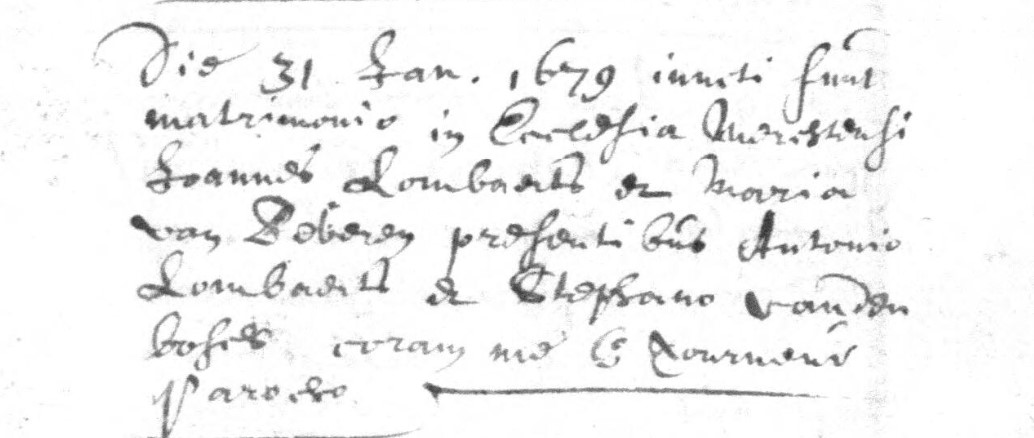 Die 31 Jan. 1679 iuncti sunt
matrimonio in Ecclesia Merchtensi
Joannes Lombaerts et Maria
van Beveren presentibus Antonio
Lombaerts et Stephano vanden
coram me
Parocho